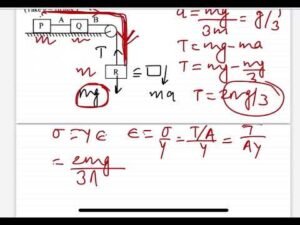 P A Q B
m m
T
m R ≅ ↓ ma
mg
a = mg/3m = g/3
T = mg - ma
T = mg - mg/3
T = 2mg/3
σ = Yε ε = σ/Y = T/A/Y = T/AY
= 2mg/3A